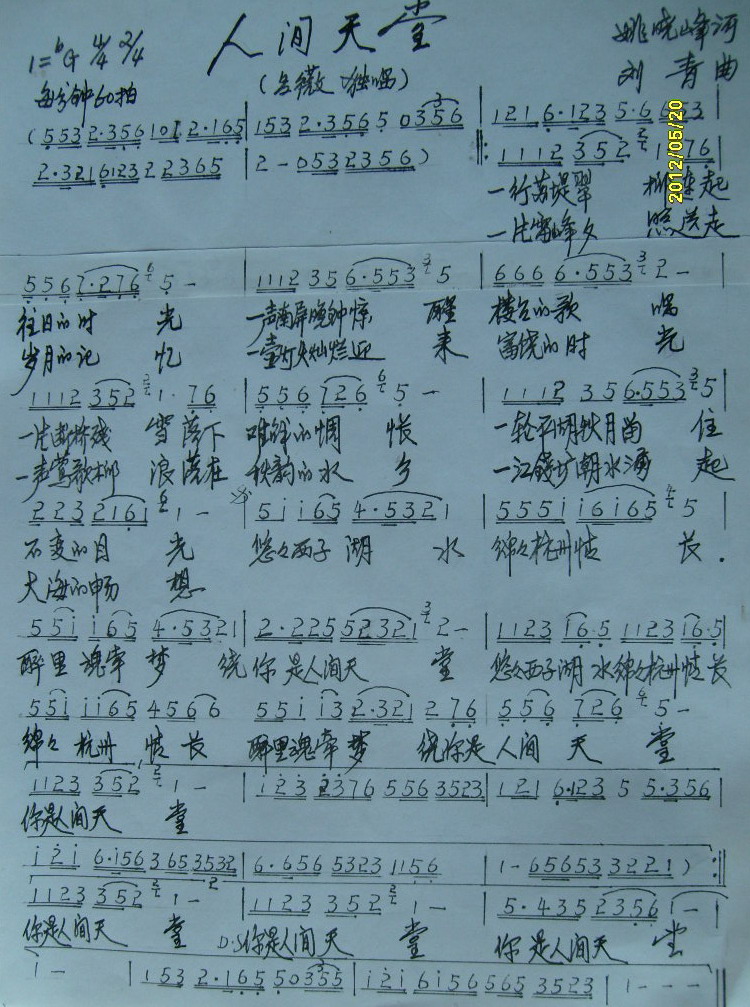 人间天堂
(吕薇 独唱)
姚晓峰词
刘青曲
1=ᵇG 4/4 2/4
每分钟60拍
2012/05/20
(553 2·356 101 2·165 | 153 2·356 5 0356 | 121 6·123 5·6 553
2·321 6123 2 2365 | 2 - 053 2356) ‖: 1112 352 1·76 |
一行苏堤翠 柳 起
一片雷峰夕 照 走
556 7·276 5 - | 1112 35 6·553 5 | 666 6·553 2 - |
往日的时 光 一声南屏晚钟惊 醒 楼台的歌 唱
岁月的记 忆 一壶灯火灿烂迎 来 富饶的时 光
1112 352 1·76 | 556 726 5 - | 1112 35 6·553 5
一片断桥残 雪落下 唯美的惆 怅 一轮平湖秋月留 住
一声莺歌柳 浪落在 秋韵的水 乡 一江钱塘潮水涌 起
223 2161 1 - | 51 i i65 4·5321 | 555i i6i65 5
不变的目 光 悠々西子湖 水 绵々杭州情 长.
大海的畅 想
55i i65 4·5321 | 2·225 52321 2 - | 1123 i6·5 1123 i6·5
醉里魂牵梦 绕 你是人间天 堂 悠々西子湖 水绵々杭州情长
55i ii65 4566 | 55i i3 2·321 276 | 556 726 5 -
绵々杭州情长 醉里魂牵梦 绕你是人间 天 堂
1123 352 1 - | i23 2376 556 3523 | 121 6·123 5 5·356 |
你是人间天 堂
i2i 6·i56 365 3532 | 6·656 5323 1156 | 1 - 65653 3221) :‖
1123 352 1 - | 1123 352 1 - | 5·435 2356 1 - |
你是人间天 堂 D.S你是人间天 堂 你是人间天 堂
1 - | 153 2·165 50355 | i2i 6156 565 3523 | 1 - - - ‖